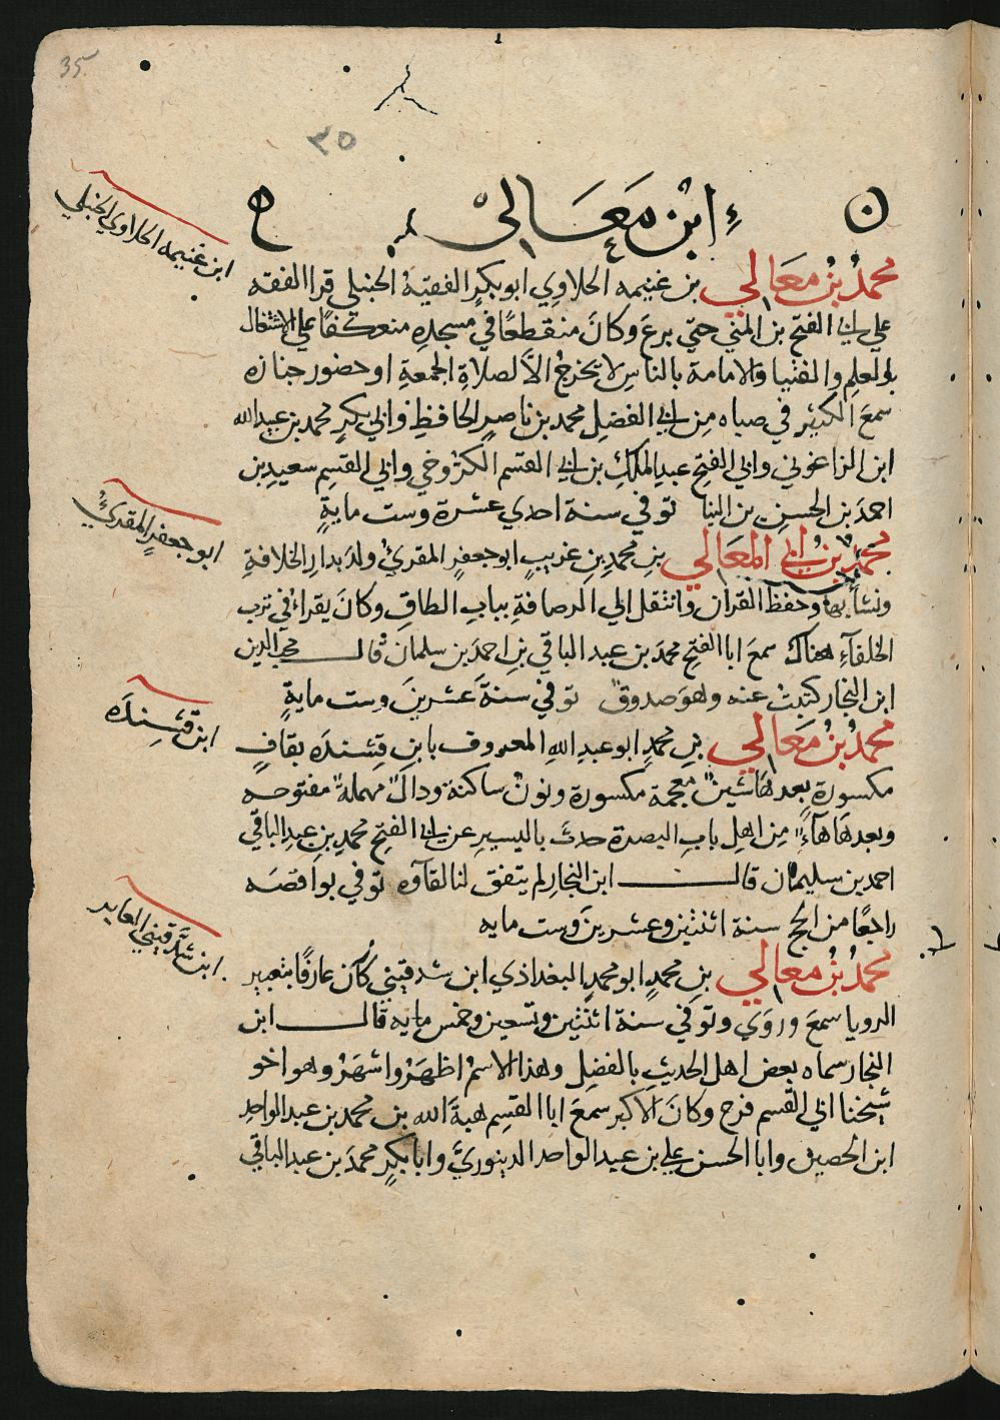 35
٣٥
ابن معالي
محمد بن معالي بن غنيمه الحلاوي ابو بكر الفقيه الحنبلي قرا الفقه
علي ابي الفتح بن المني حتي برع وكان منقطعا في مسجده منعكفا علي الاشتغال
بالعلم والفتيا والامامة بالناس لا يخرج الا لصلاة الجمعة او حضور جنازه
سمع الكثير في صباه من ابي الفضل محمد بن ناصر الحافظ وابي بكر محمد بن عبيد الله
ابن الزاغوني وابي الفتح عبد الملك بن ابي القسم الكروخي وابي القسم سعيد بن
احمد بن الحسن بن البنا توفي سنة احدي عشرة وست ماية
محمد بن ابي المعالي بن محمد بن غريب ابو جعفر المقرئ ولد بدار الخلافة
ونشأ بها وحفظ القران وانتقل الي الرصافة بباب الطاق وكان يقراء في ترب
الخلفآء هناك سمع ابا الفتح محمد بن عبد الباقي بن احمد بن سلمان قال محب الدين
ابن النجار كتبت عنه وهو صدوق توفي سنة عشرين وست ماية
محمد بن معالي بن محمد ابو عبد الله المعروف بابن قشنده بقاف
مكسورة بعدها شين معجمة مكسورة ونون ساكنة ودال مهملة مفتوحه
وبعدها هآء من اهل باب البصرة حدث باليسير عن ابي الفتح محمد بن عبد الباقي
احمد بن سليمان قال ابن النجار لم يتفق لنا لقاؤه توفي بواقصه
راجعا من الحج سنة اثنتين وعشرين وست مايه
محمد بن معالي بن محمد ابو محمد البغداذي ابن شدقيني كان عارفا بتعبير
الرويا سمع وروي وتوفي سنة اثنتين وتسعين وخمس مايه قال ابن
النجار سماه بعض اهل الحديث بالفضل وهذا الاسم اظهر واشهر وهو اخو
شيخنا ابي القسم فرج وكان الاكبر سمع ابا القسم هبة الله بن محمد بن عبد الواحد
ابن الحصين وابا الحسن علي بن عبد الواحد الدينوري وابا بكر محمد بن عبد الباقي
ابن غنيمه الحلاوي الحنبلي
ابو جعفر المقرئ
ابن قشنده
ابن شدقيني العابر